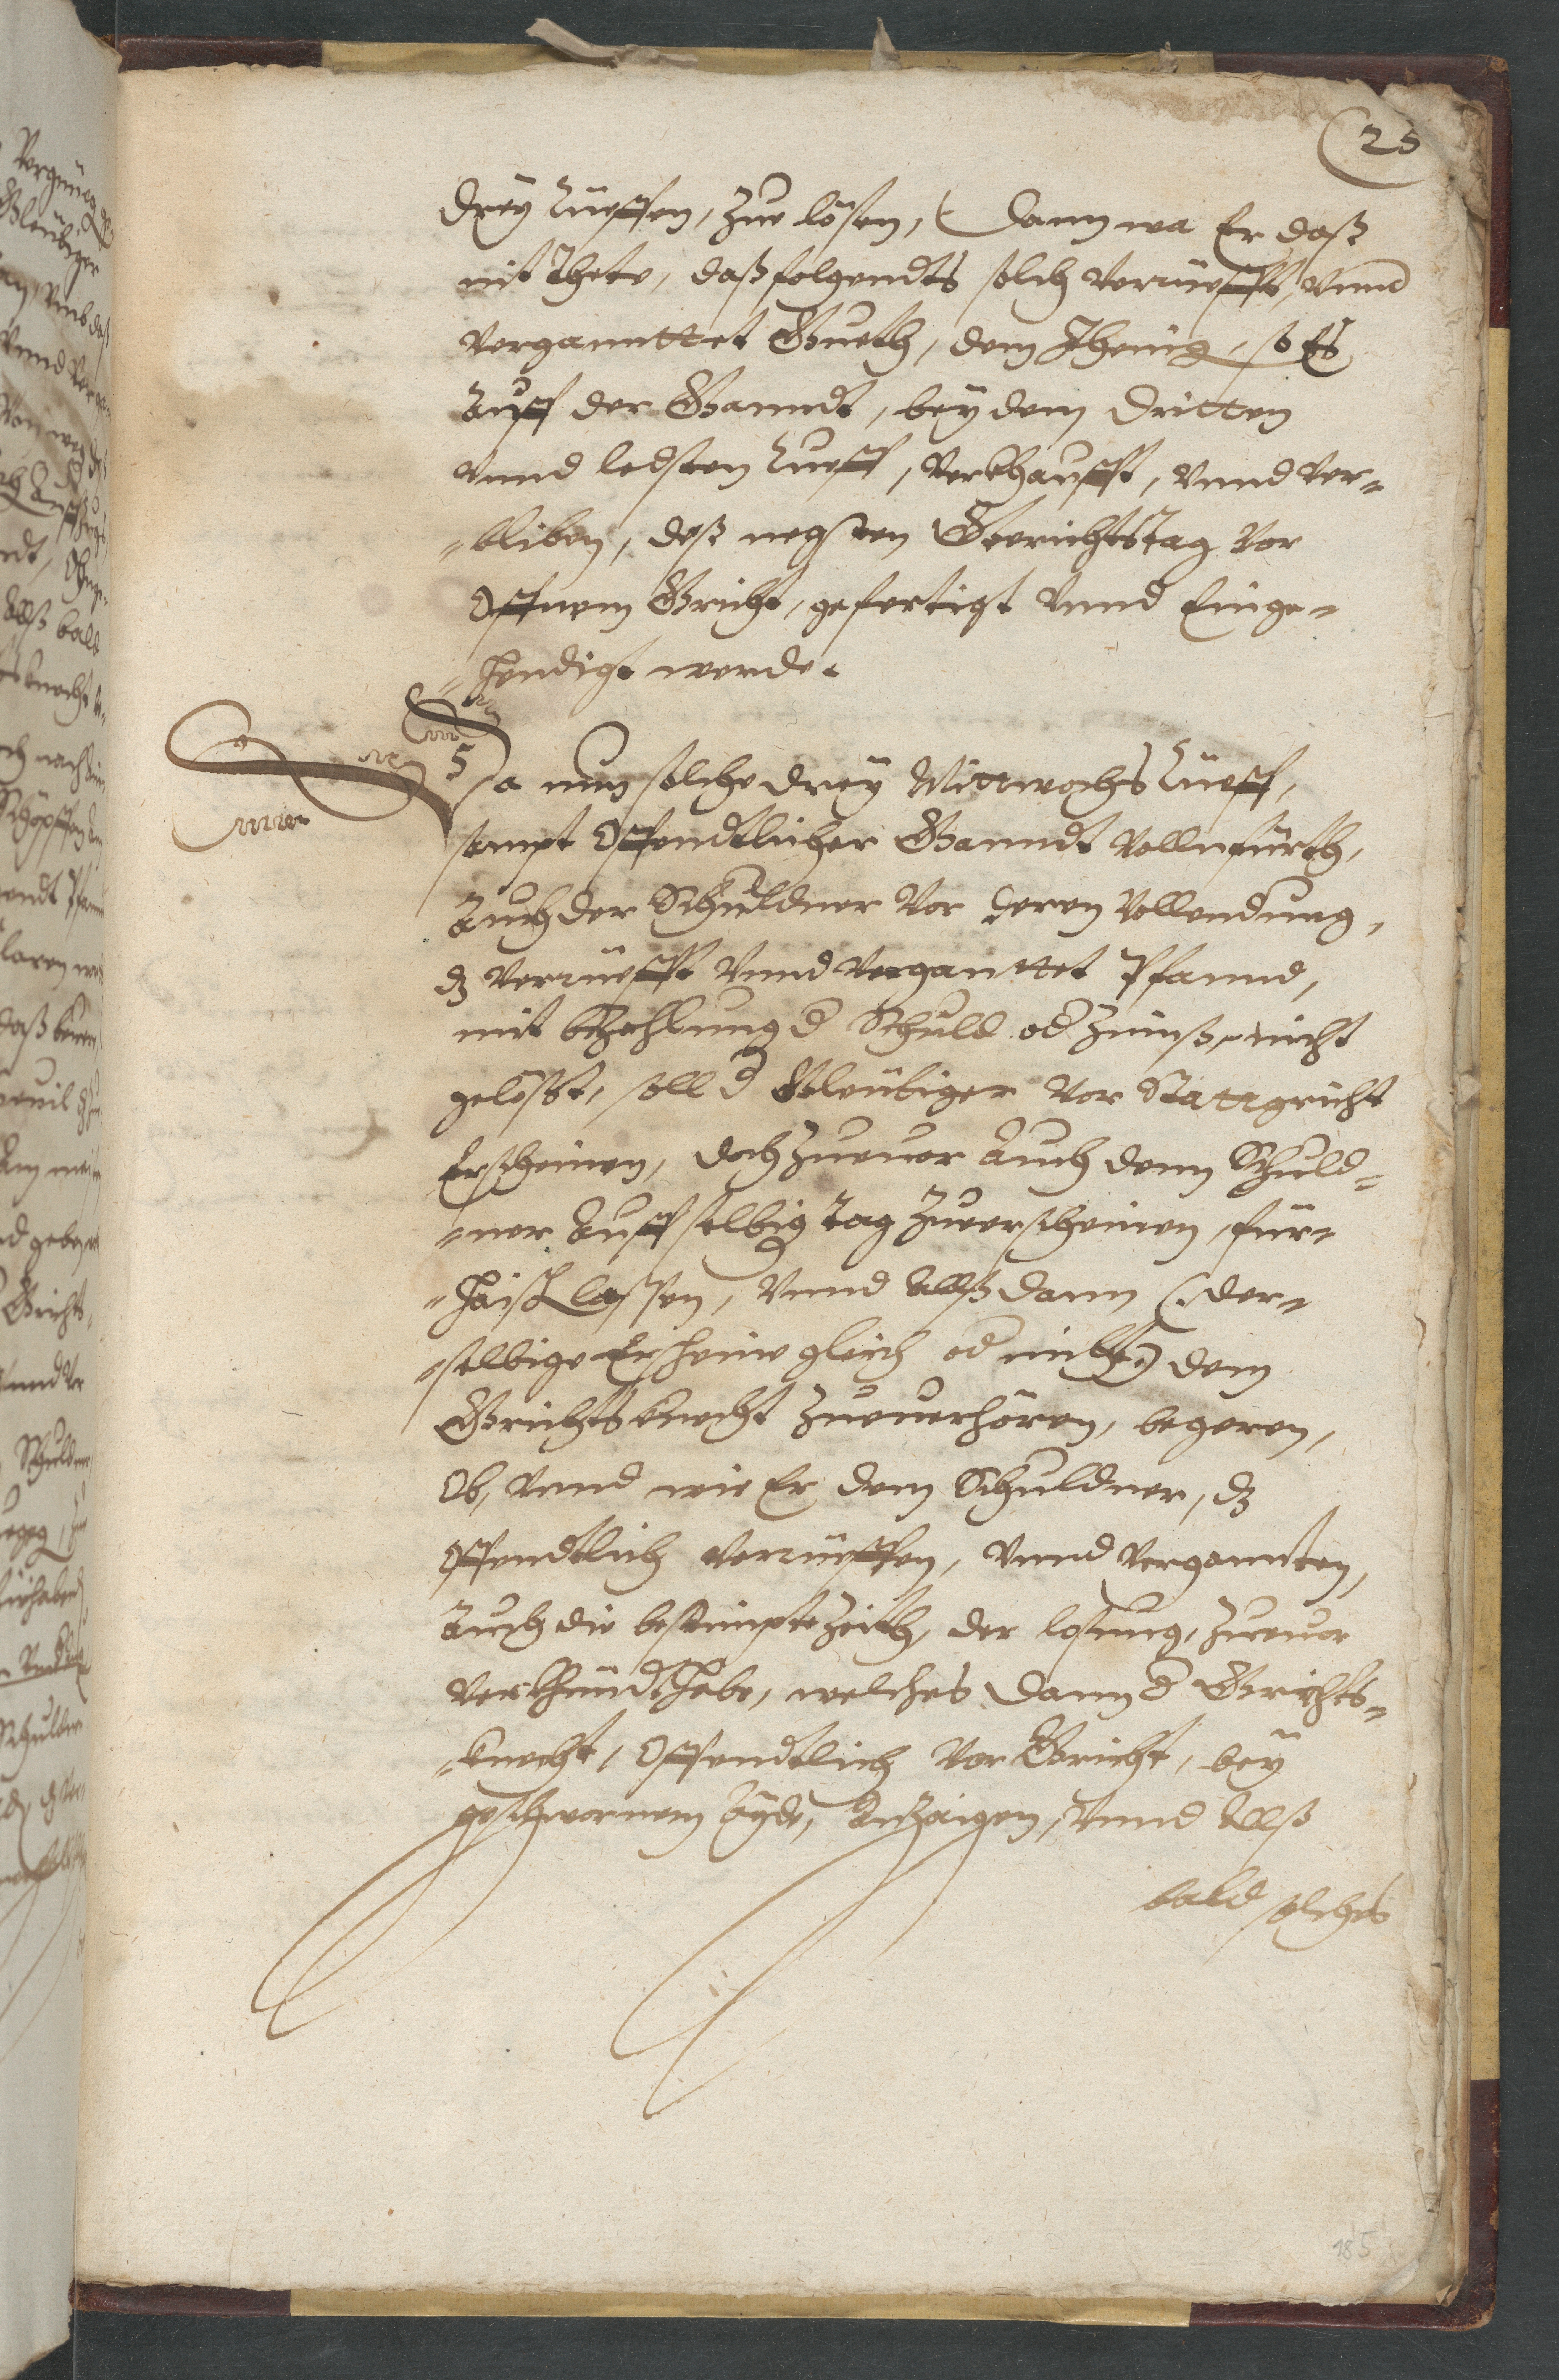 25
drey Rüeffen, Zue lösen, Dann wa Er daß
nit Thete, daß folgendts solch verrüefft, vnnd
verganntet Gueth, dem Jhenig, so Es
Auff der Ganndt, bey dem dritten
vnnd ledsten Rueff, verkhaufft, vnnd ver„
„bliben, deß negsten Gerichtstag vor
Offnem Gricht, gefertigt vnnd Einge„
„hendigt werde.
5
Da nun solche drey Mittwochs Rüeff,
sampt Offendtlicher Ganndt vollnfürth,
Auch der Schuldner vor deren vollendung,
dz verrüefft vnnd verganttet Pfannd,
mit bezahlung d Schuld od Zinnß, nicht
gelößt, soll d Gleübiger vor Stattgricht
Erscheinen, doch Zueuor Auch dem Schuld„
„ner Auff selbig Tag Zuerscheinen, für„
„haisch lassen, vnnd Alßdann (: der„
„selbige Erscheine gleich od nicht:) dem
Grichtsknecht Zueuerhören, begeren,
Ob, vnnd wie Er dem Schuldner, dz
Offendtlich verrüeffen, vnnd verganten,
Auch die bestimpte Zeith, der losung, Zueuor
verkhündt habe, welches dann d Grichts„
„knecht, Offendtlich vor Gricht, bey
geschwornem Ayde, Anzaigen, vnnd Alß
bald solches
185